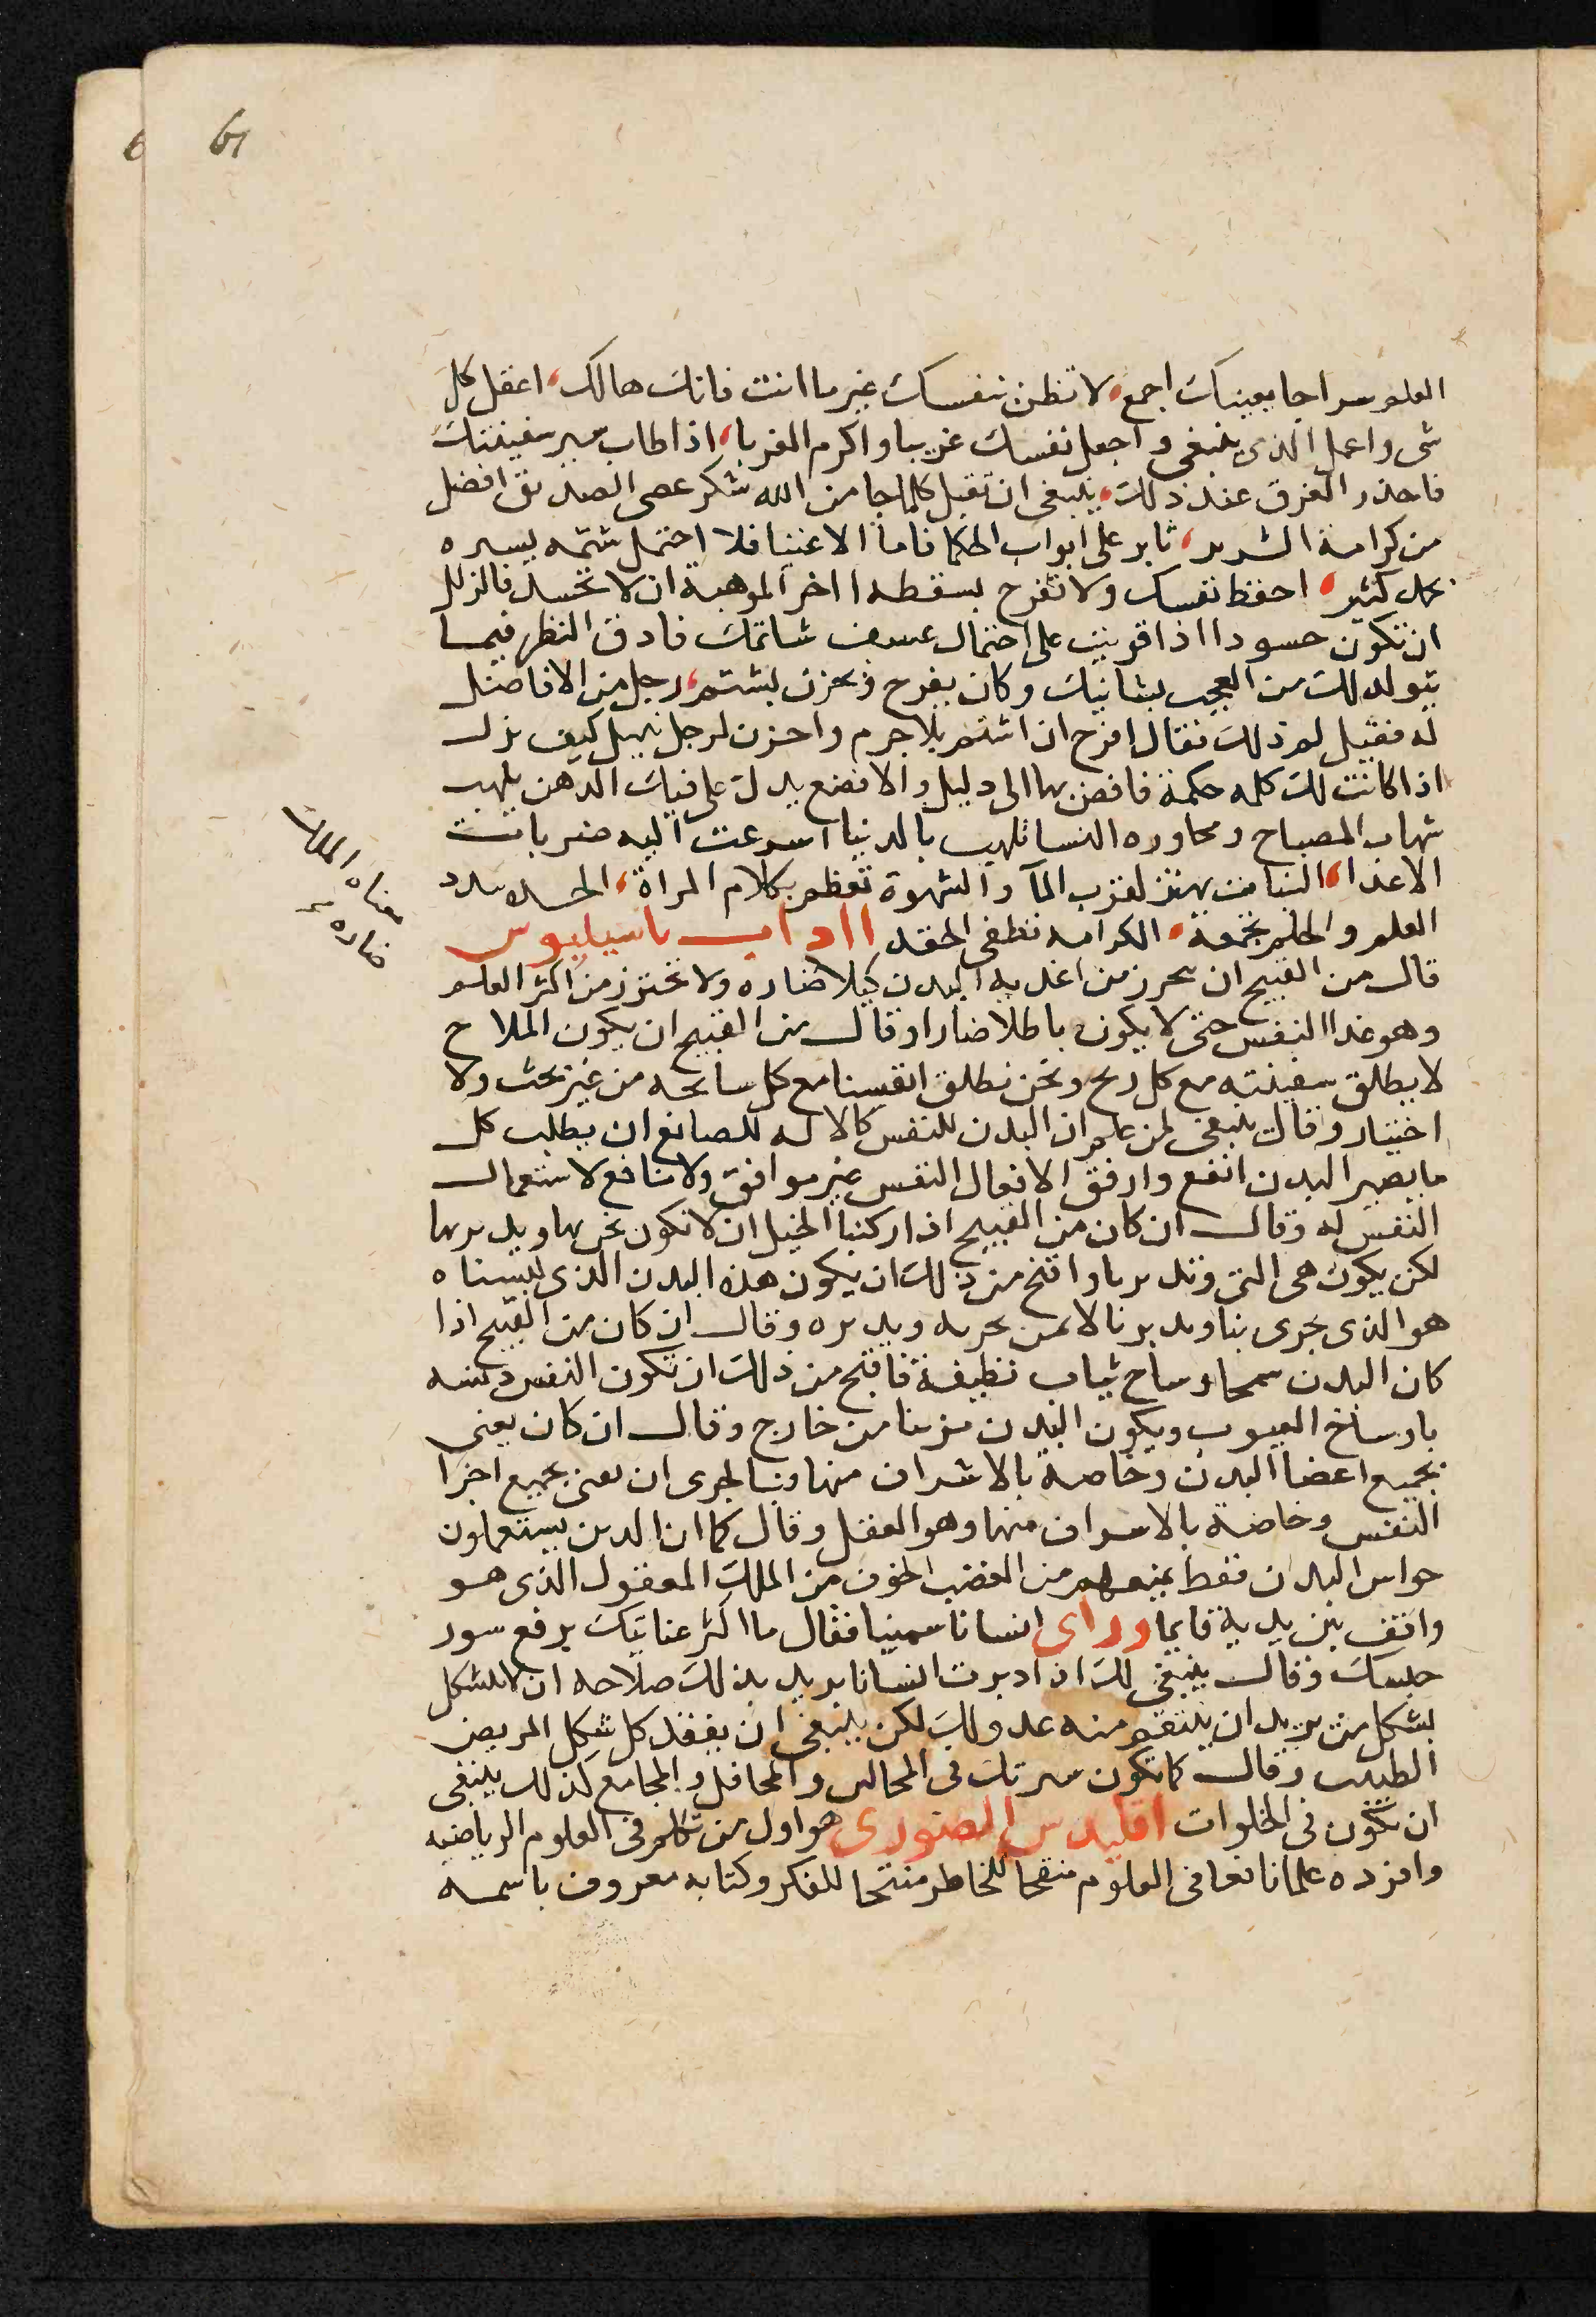 61
العلم سراجا بعينيك اجمع، لا تظن بنفسك غير ما انت فانك هالك، اعقل كل
شى واعمل الذى ينبغى واجعل نفسك غريبا واكرم الغربا، اذا طاب سير سفينتك
فاحذر الغرق عند ذلك، ينبغى ان تقبل كلما جا من الله بشكر عصى الصديق افضل
من كرامة الشرير، ثابر على ابواب الحكما فاما الاغنيا فلا احتمل شتمه يسيره
بحلم كثير، احفظ نفسك ولا تفرح بسقطه ااخر الموهبة ان لا تحسد فالزلل
ان تكون حسودا اذا قويت على احتمال عسف شاتمك فادق النظر فيما
يتولد لك من العجب بشانيك وكان يفرح ويحزن بشتم، رجل من الافاضل
له فقيل له ذلك فقال افرح ان اشتم بلا جرم واحزن لرجل نبيل كيف نزل
اذا كانت لك كلمه حكمة فافض بها الى دليل والا فضع يدك على فيك الدهن يلهب
شهاب المصباح ومحاوره النسا تلهب بالدنيا اسرعت اليه ضربات
الاعدا، النبات يهتز لقرب المآ والشهوة تعظم بكلام المراة، الحسد يبدد
العلم والحلم يجمعة، الكرامه تطفى الحقد ااداب باسيليوس
قال من القبيح ان نحرز من اغديه البدن كيلا ضاره ولا نحترز من اكثر العلم
وهو غدا النفس حتى لا يكون باطلا ضارا وقال من القبيح ان يكون الملاح
لا يطلق سفينته مع كل ريح ونحن نطلق انفسنا مع كل سانحه من غير بحث ولا
اختيار وقال ينبغى لمن علم ان البدن للنفس كالاله للصانع ان يطلب كل
ما يصير البدن انفع وارفق الافعال النفس غير موافق ولا منافع لاستعمال
النفس له وقال ان كان من القبيح اذا ركبنا الخيل ان لا نكون نحن بها ويدبرها
لكن يكون هى التى وتدبرنا واقبح من ذلك ان يكون هذا البدن الذى لبسناه
هو الذى يجرى بنا ويدبرنا لا نحن نجريه ويدبره وقال ان كان من القبيح اذا
كان البدن سمجا وساخ ثياب نظيفة فاقبح من ذلك ان تكون النفس دنسه
باوساخ العيوب ويكون البدن مزينا من خارج وقال ان كان يعنى
بجميع اعضا البدن وخاصة بالاشراف منها وبنا لجرى ان نعنى بجميع اجزا
النفس وخاصة بالاسراف منها وهو العقل وقال كما ان الدين يستعملون
حواس البدن فقط يمنعهم من الغضب الخوف من الملك المعقول الذى هو
واقف بين يديه قايما وراى انسانا سمينا فقال ما اكثر عنايتك برفع سور
حبسك وقال ينبغى لك اذا ادبرت انسانا يريد بذلك صلاحه ان لا تشكل
بشكل من يريد ان ينتقم منه عدو لك لكن ينبغى ان يفقد كل شكل المريض
الطبيب وقال كما تكون سيرتك فى المجالس والمحافل والمجامع كذلك ينبغى
ان تكون فى الخلوات اقليدس الصورى هو اول من تكلم فى العلوم الرياضيه
وافرده علما نافعا فى العلوم منقحا للخاطر منتجا للفكر وكتابه معروف باسمه